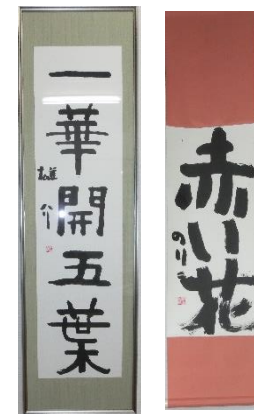 一華開五葉
赤い花